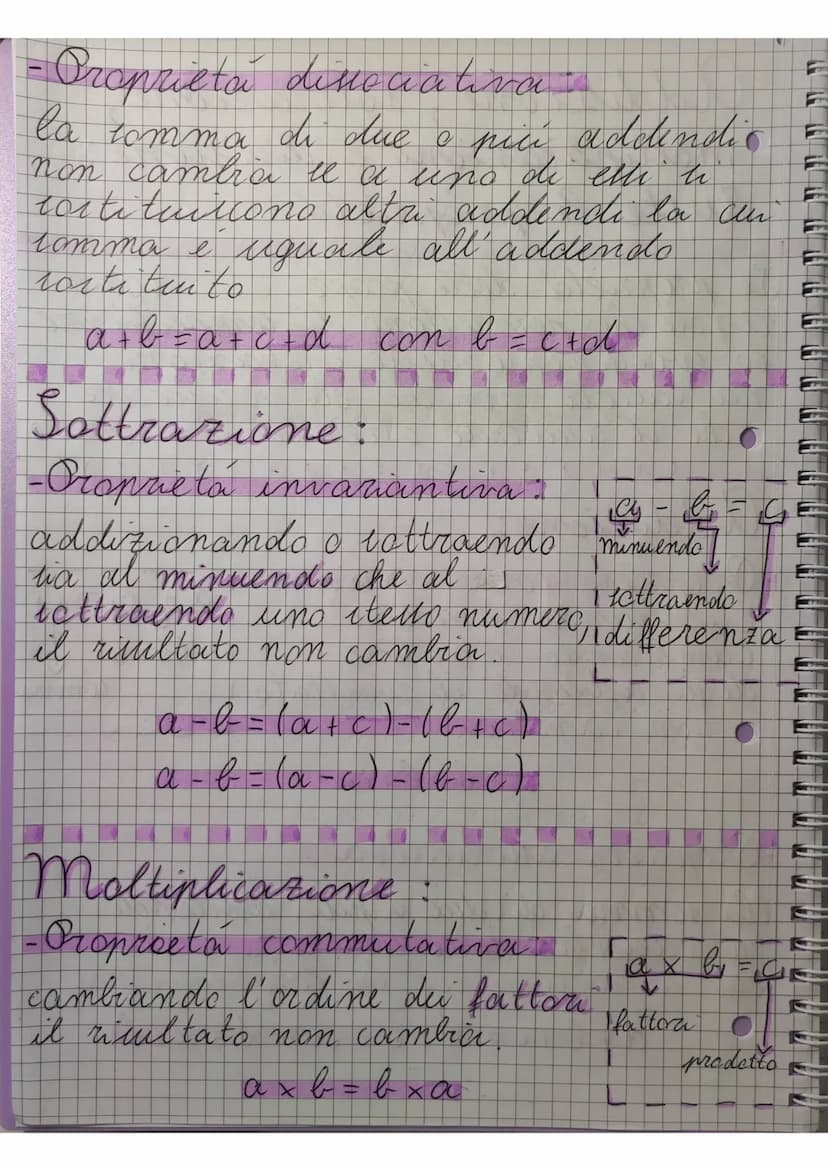 - Proprietá dissociativa:
la somma di due o piú addendi
non cambia se a uno di essi si
sostituiscono altri addendi la cui
somma é uguale all'addendo
sostituito
a+b=a+c+d con b=c+d
Sottrazione:
- Proprietá invariantiva:
addizionando o sottraendo
sia al minuendo che al
sottraendo uno stesso numero,
il risultato non cambia.
a - b = c
minuendo
sottraendo
differenza
a-b=(a+c)-(b+c)
a-b=(a-c)-(b-c)
Moltiplicazione:
- Proprietá commutativa:
cambiando l'ordine dei fattori
il risultato non cambia.
a x b = c
fattori
prodotto
a x b = b x a